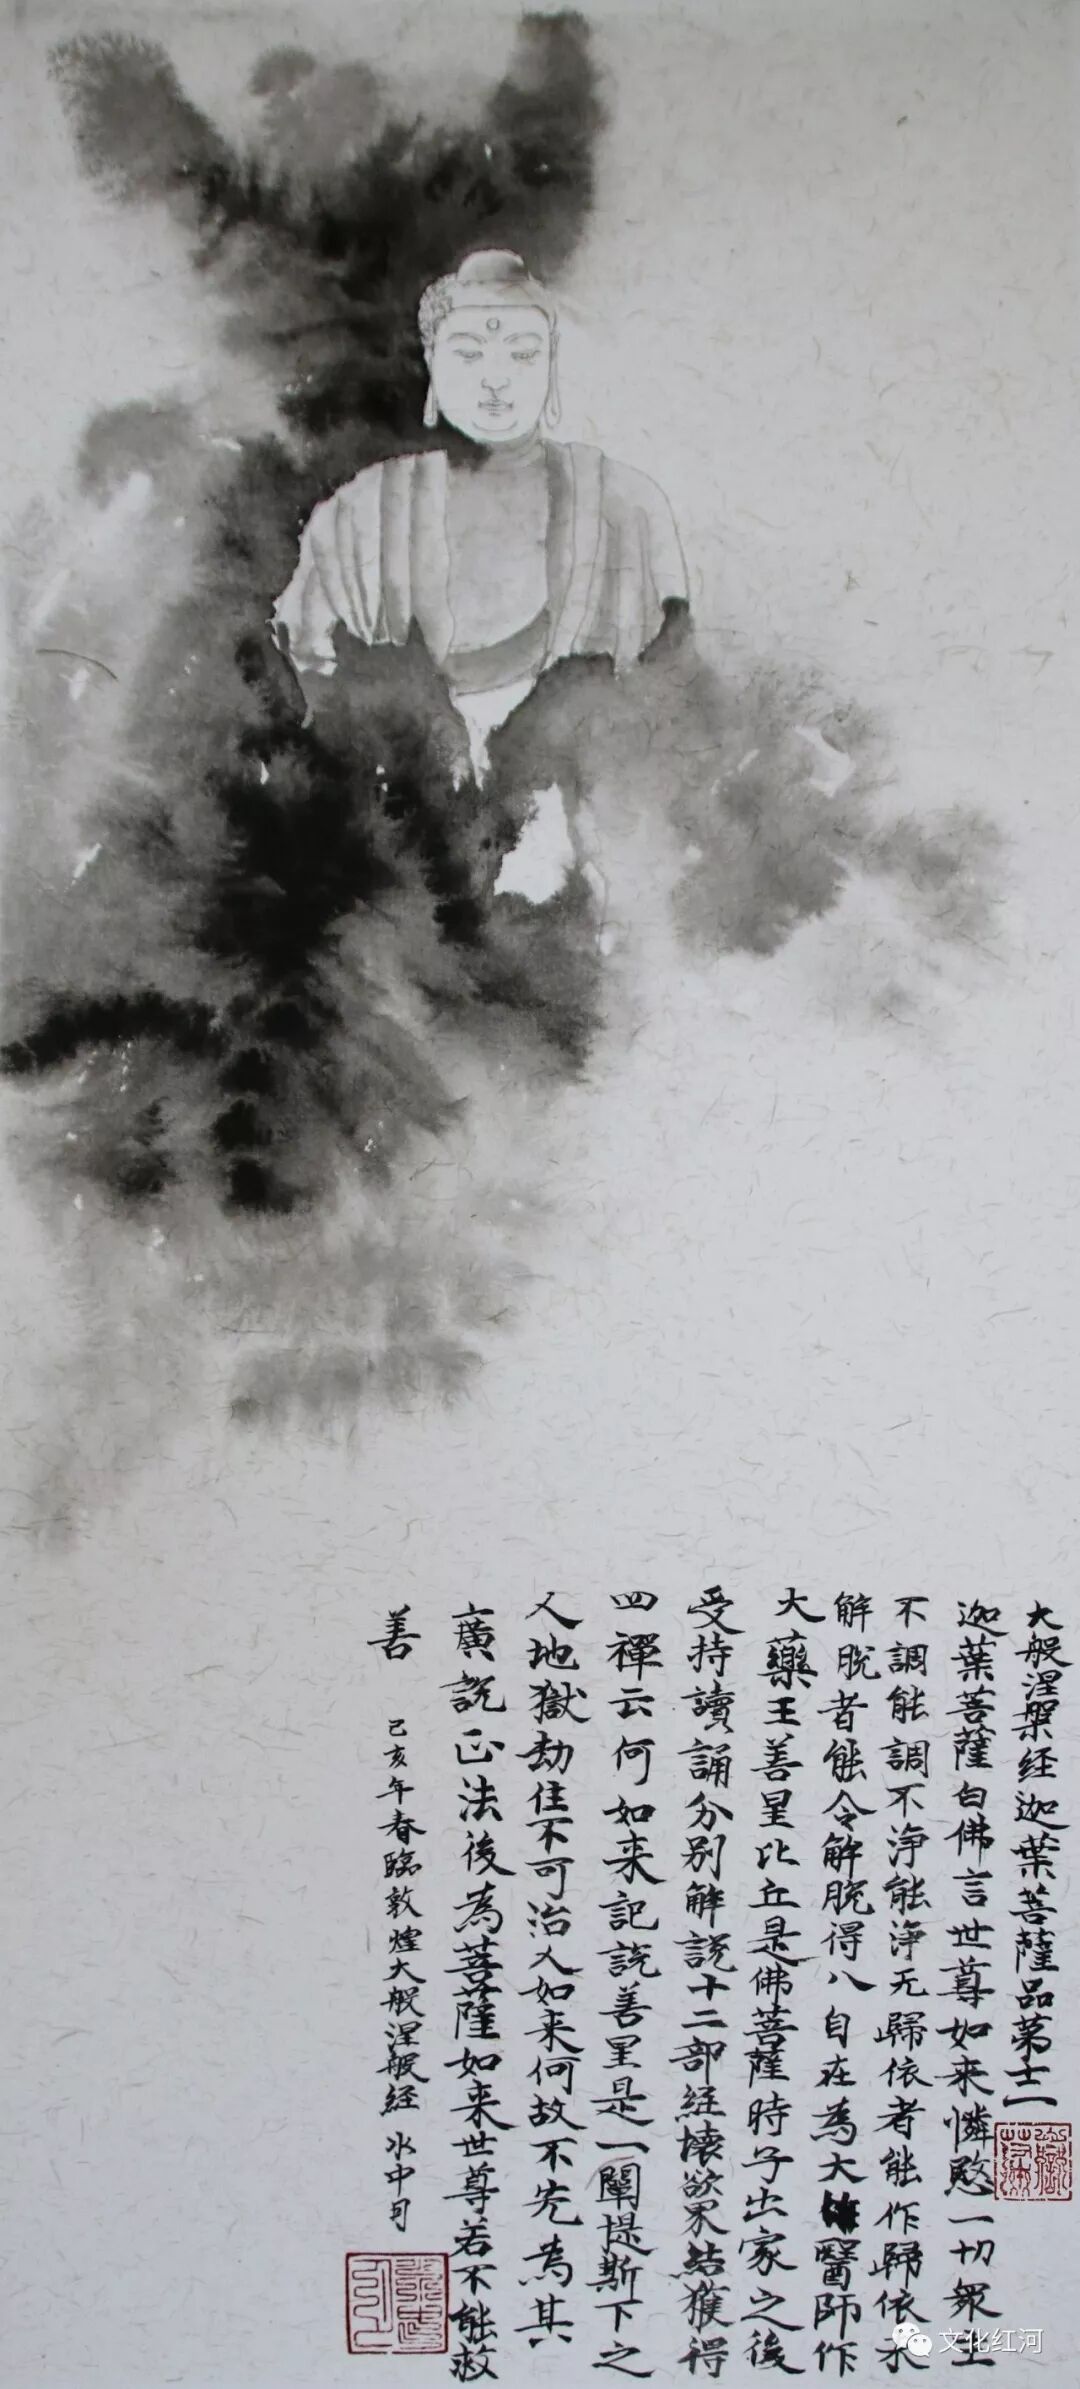 大般涅槃经迦葉菩薩品第十二
迦葉菩薩白佛言世尊如来憐愍一切衆生
不調能調不淨能淨无歸依者能作歸依未
解脱者能令解脱得八自在為大醫師作
大藥王善星比丘是佛菩薩時子出家之後
受持讀誦分别解説十二部経壊欲界結獲得
四禪云何如来記説善星是一闡提斯下之
人地獄劫住不可治人如来何故不先為其
廣説正法後為菩薩如来世尊若不能救
善
己亥年春臨敦煌大般涅槃经 水中月
文化红河